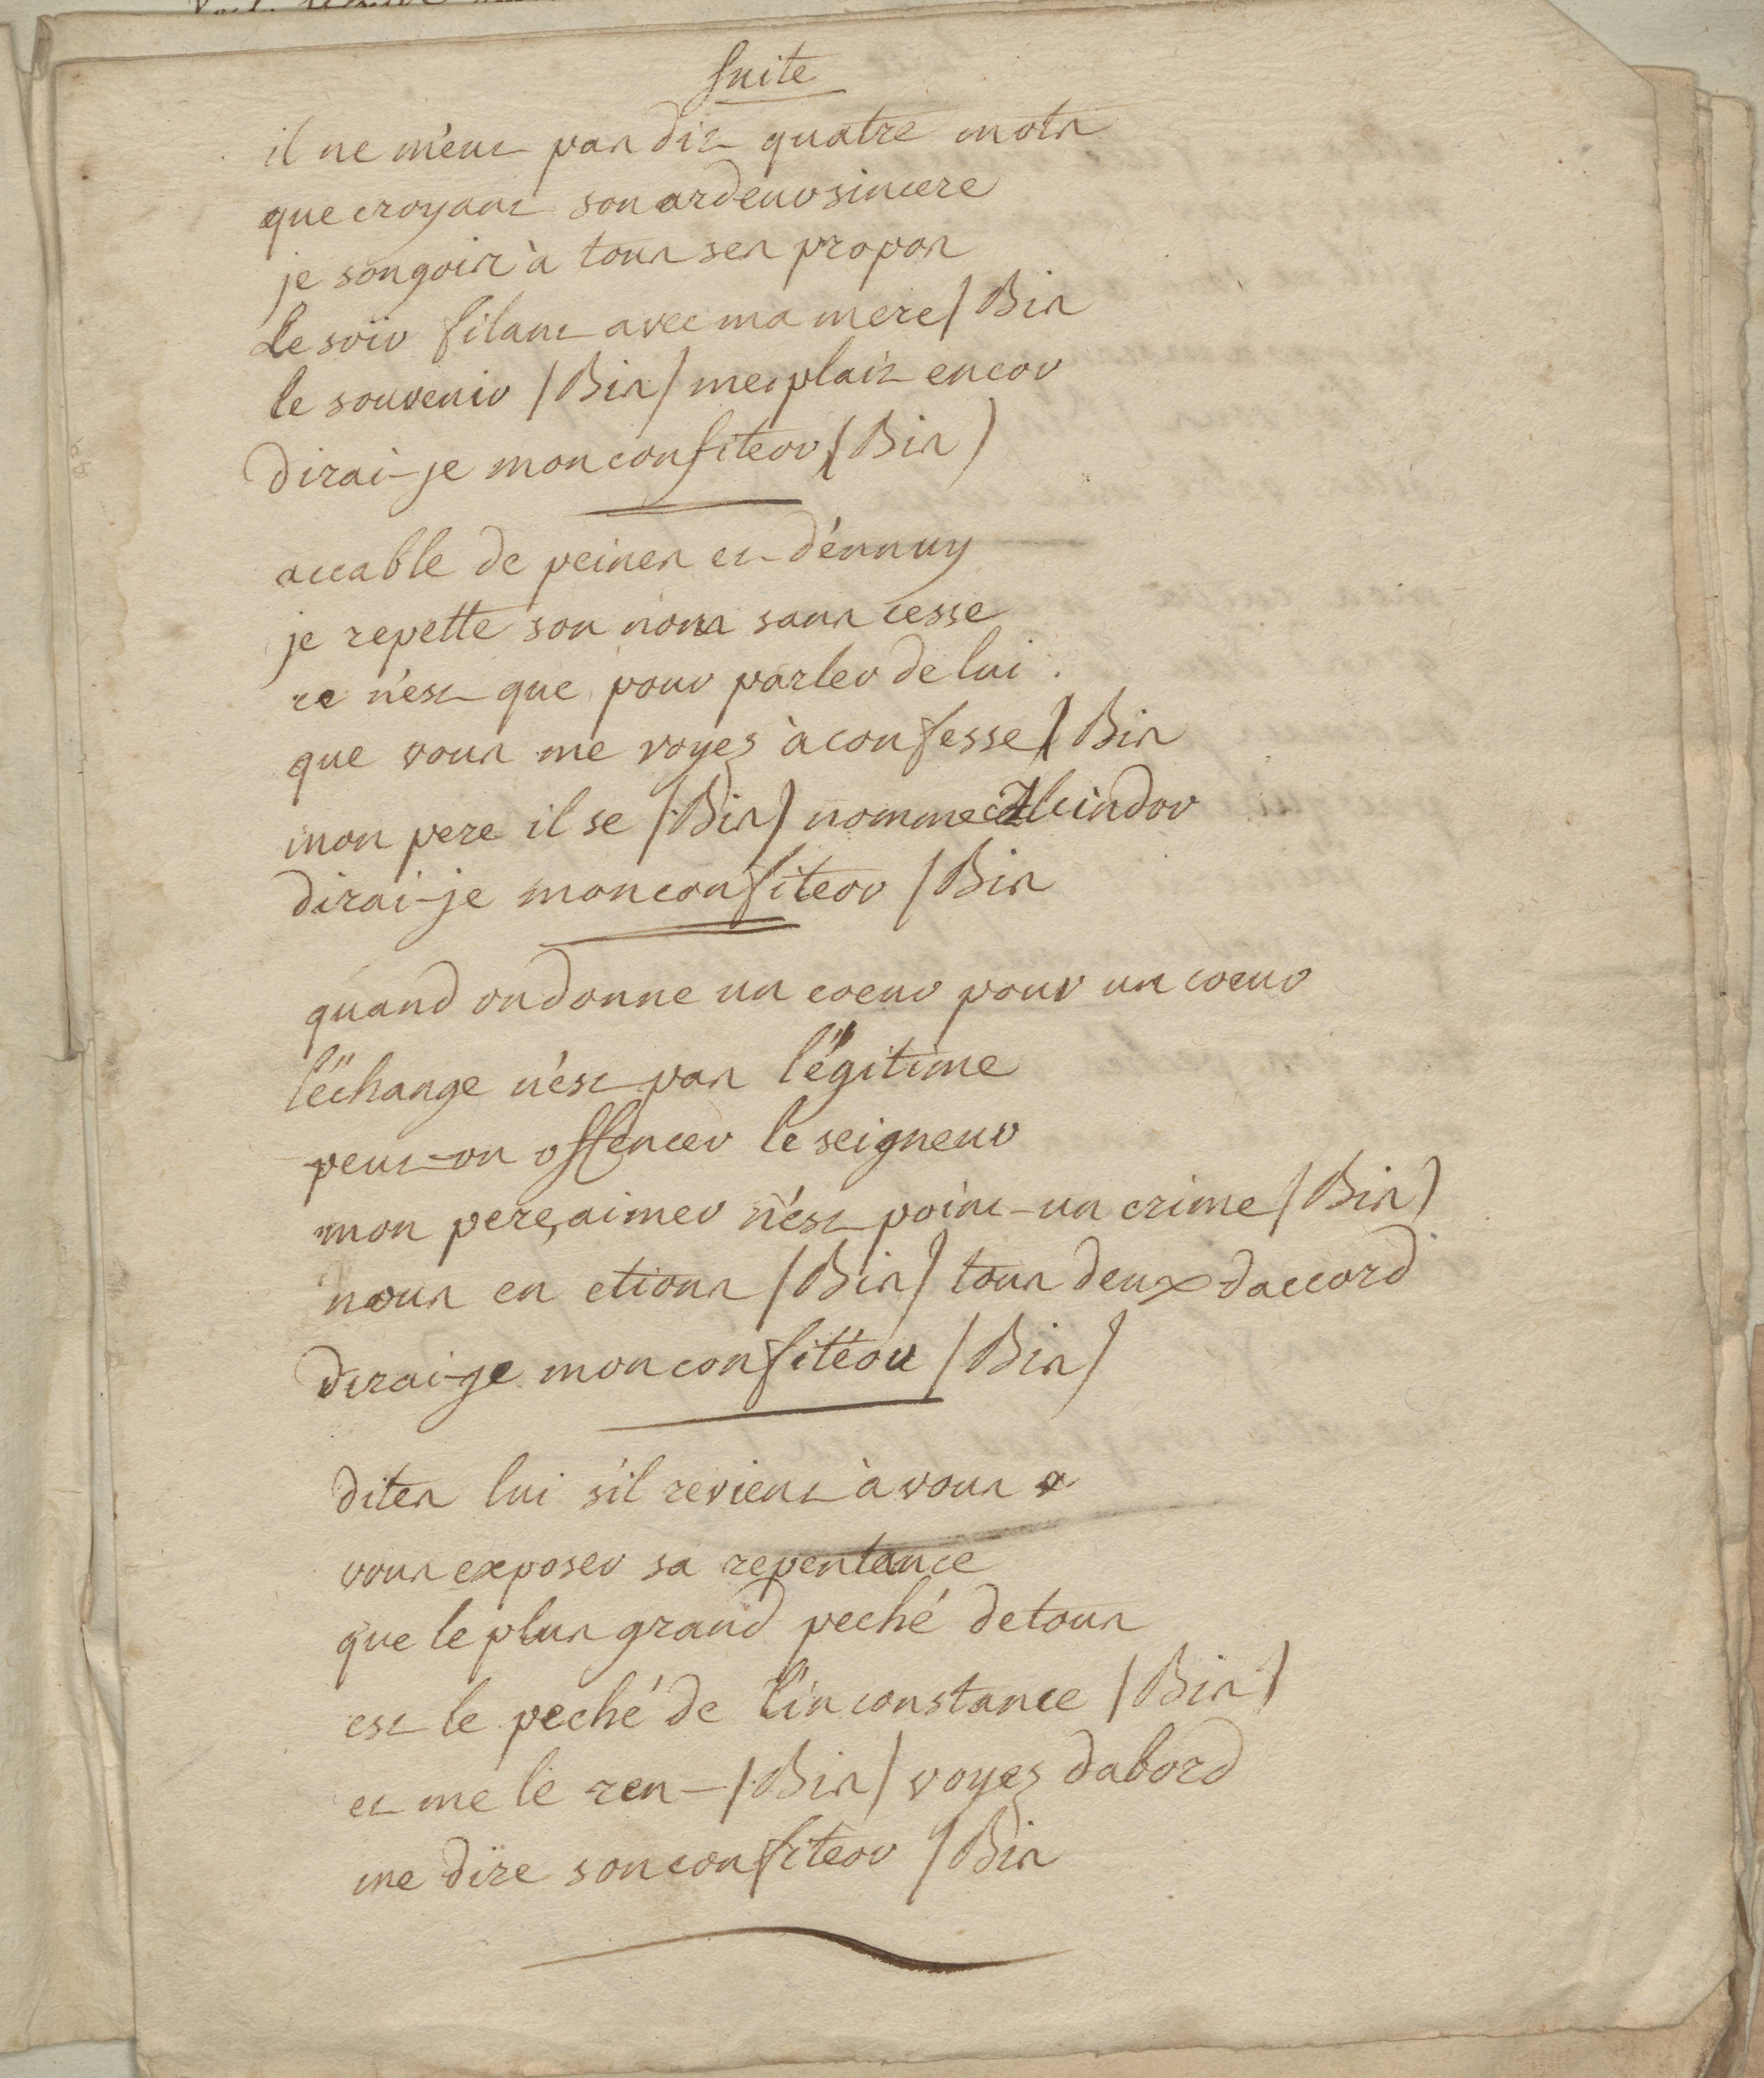 Suite
il ne m'eut pas dit quatre mots
que croyant son ardeur sincere
je songois à tous ses propos
Le soir filant avec ma mere / Bis
le souvenir / Bis / me plait encor
dirai-je mon confiteor / Bis )
accable de peines et d'énnuy
je repette son nom sans cesse
ce n'est que pour parler de lui
que vous me voyes à confesse / Bis
mon pere il se / Bis ) nomme Alcindor
dirai-je mon confiteor / Bis
quand on donne un coeur pour un coeur
l'échange n'est pas légitime
peut-on offencer le seigneur
mon pere, aimer n'est point un crime / Bis )
nous en etions / Bis / tous deux daccord
dirai-ge mon confitéor / Bis /
dites lui s'il revient à vous
vous exposer sa repentance
que le plus grand peché de tous
est le peché de l'inconstance / Bis )
et me le ren- / Bis / voyes dabord
me dire son confiteor / Bis